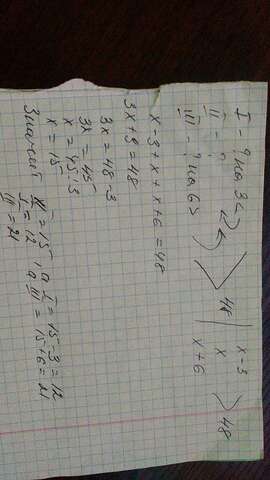 I - ? на 3 < x - 3
II - ? 48 x 48
III - ? на 6 > x + 6
x - 3 + x + x + 6 = 48
3x + 3 = 48
3x = 48 - 3
3x = 45
x = 45 : 3
x = 15
Значит II = 15, а I = 15 - 3 = 12
I = 12, а III = 15 + 6 = 21
III = 21